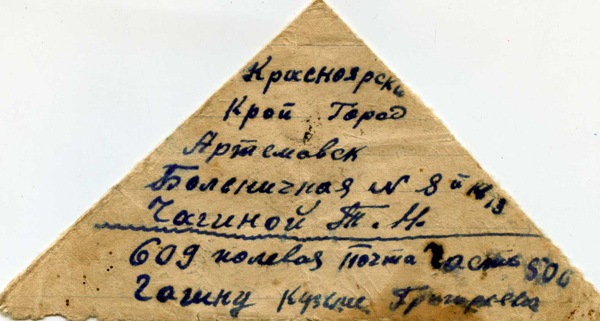 Красноярски
Край Город
Артемовск
Больничная N 8й
Чагиной Т. И.
609 полевая почта часть 506
Чагину Кузьме Григореве